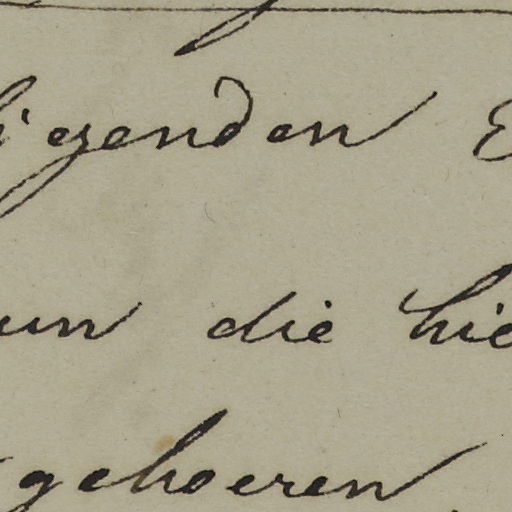 iegenden
un die hie
gehoeren